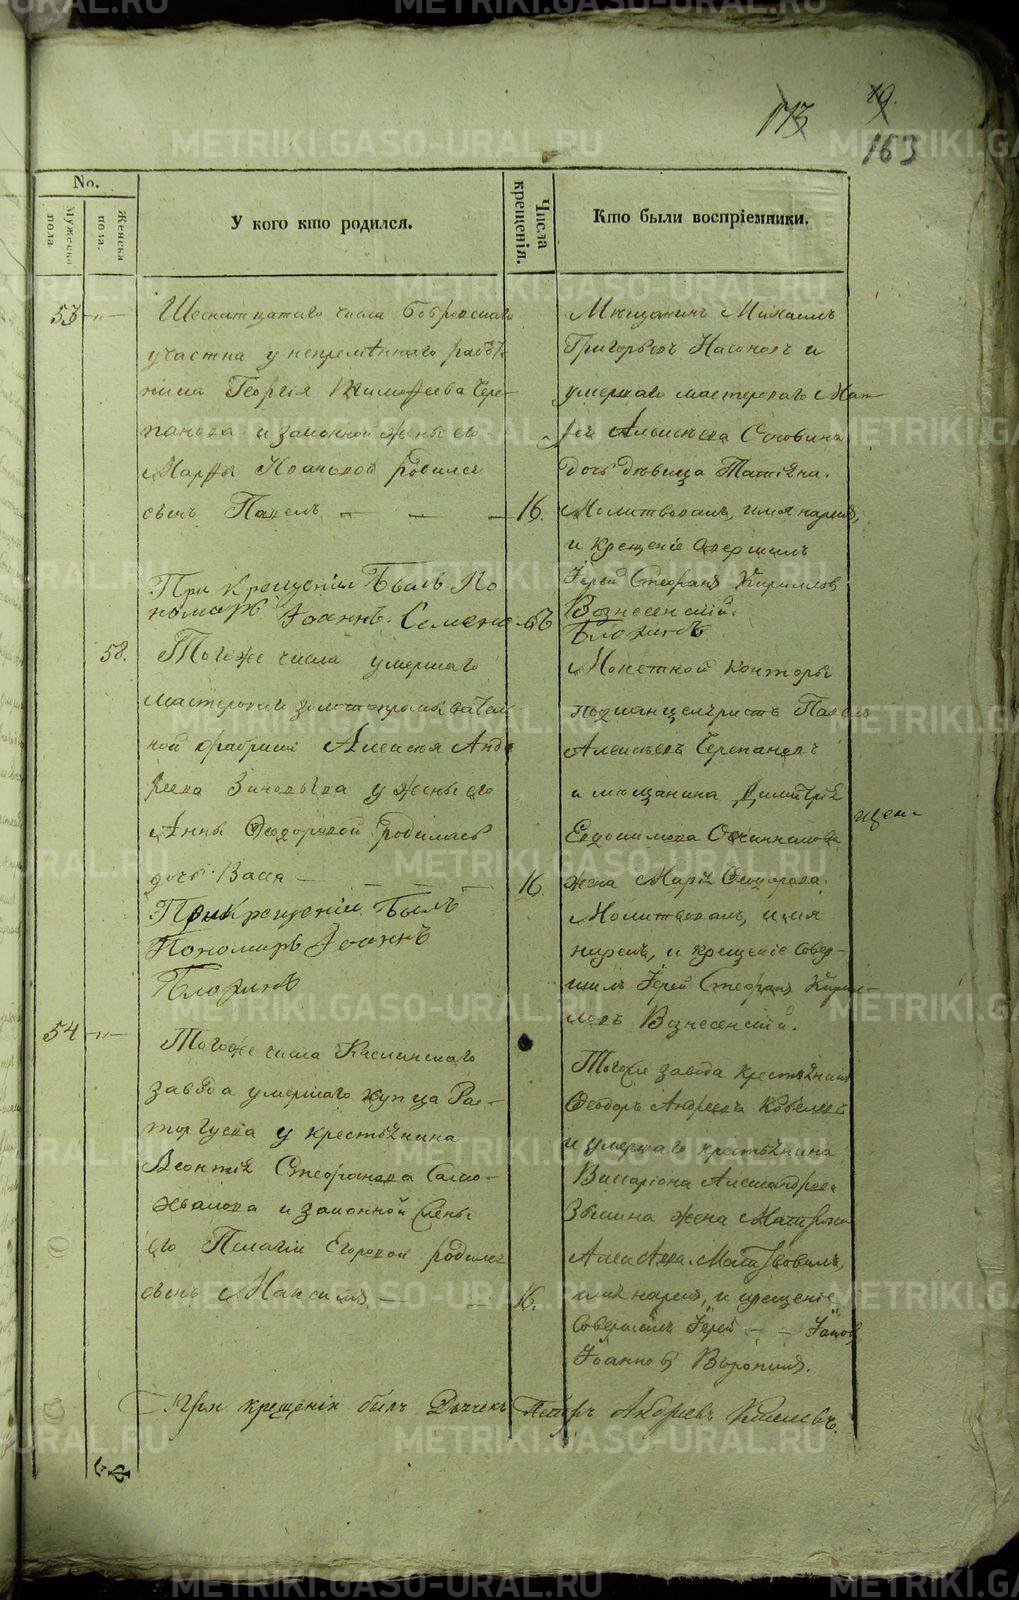 173
19.
163
No.
Мужеска пола.
Женска пола.
У кого кто родился.
Числа крещенія.
Кто были воспріемники.
53 -"-
Шеснатцатаго числа Бобровскаго
участка у непремѣннаго работ-
ника Георгія Тимофеева Чере-
панова и законной жены его
Марфы Ивановой родился
сынъ Павелъ — — — 16.
Мѣщанинъ Михаилъ
Григорьевъ Насоновъ и
умершаго мастероваго
Алексѣева
дочь дѣвица Татіяна.
Молитвовалъ, имя нарекъ,
и крещеніе совершилъ
Іерей Стефанъ Кирилловъ
Вознесенскій.
При крещеніи былъ По
номарь Іоаннъ Семено-въ
Блохинъ
58.
Тогоже числа умершаго
мастероваго золотопромывател
ной фабрики Алексея Анд
реева Зиновьева у жены его
Анны Ѳеодоровой родилась
дочь Васса — — — — 16.
Монетной конторы
подканцеляристъ Павелъ
Алексѣевъ Черепановъ
и мещанина Димитрія
Евдокимова Овчинникова
жена Марія Ѳеодорова.
Молитвовалъ, имя
нарекъ, и крещеніе совер-
шилъ Іерей Стефанъ Кирил-
ловъ Вознесенскій.
При Крещеніи былъ
Пономарь Іоаннъ
Блохинъ
54 -"-
Тогоже числа Каслинскаго
завода умершаго купца Рас-
торгуева у крестьянина
Леонтія Стефанова Само-
хвалова и законной жены
его Пелагіи Егоровой родился
сынъ Максимъ — — 16.
Тогоже завода крестьянинъ
Ѳеодоръ Андреевъ
и умершаго крестьянина
Виссаріона Александрова
жена Матрона
Алексѣева. Молитвовалъ,
имя нарекъ, и крещеніе
совершилъ Іерей — — Іаковъ
Іоанновъ
При крещеніи былъ Дьячекъ Петръ Андреевъ
METRIKI.GASO-URAL.RU